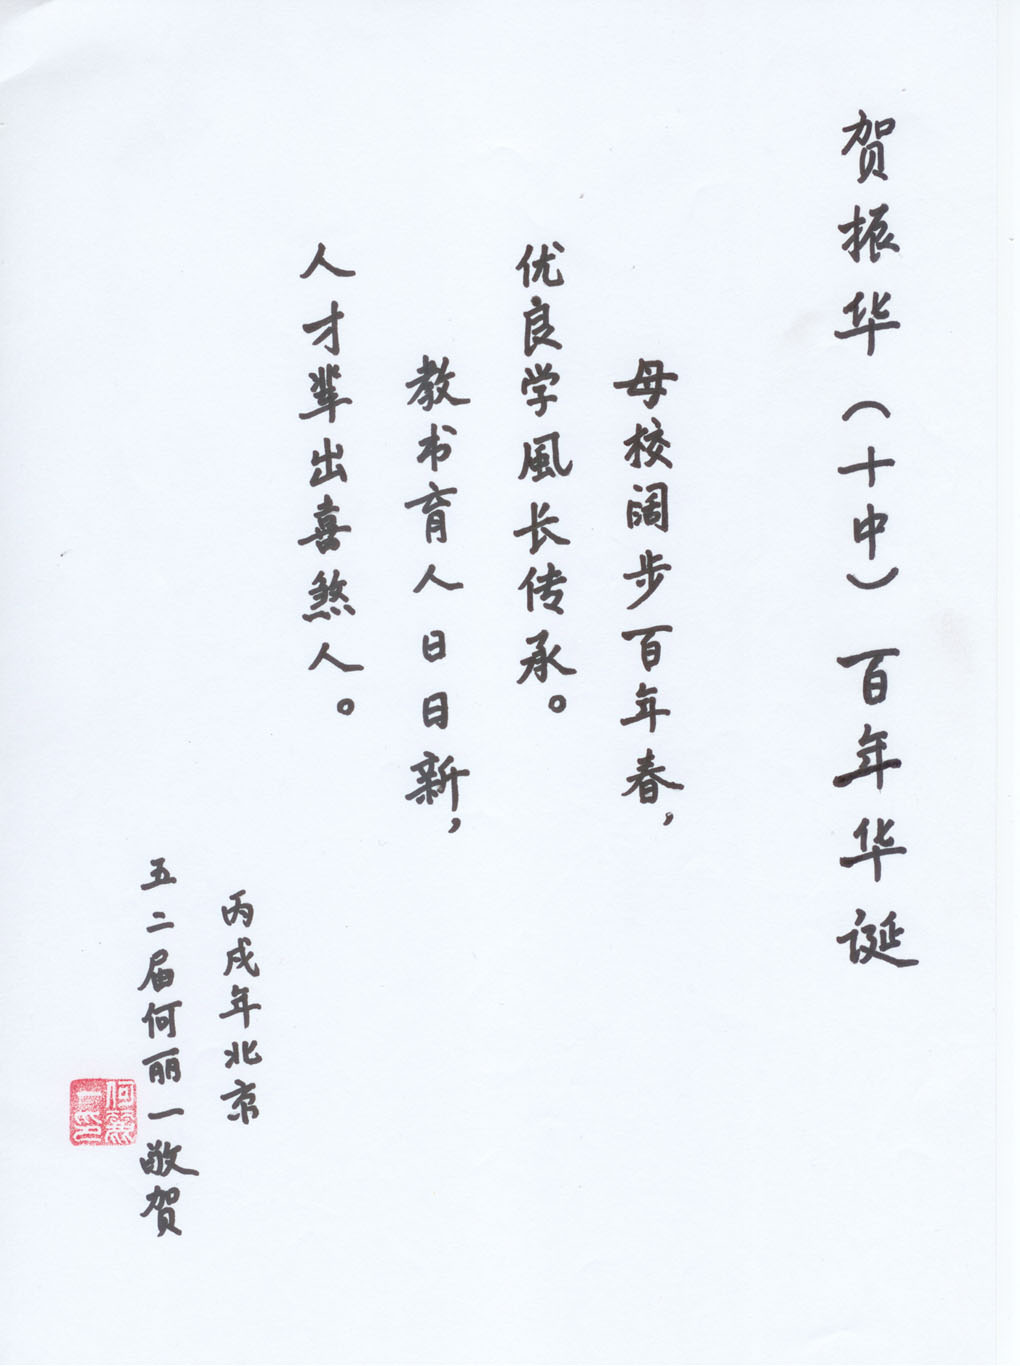 贺振华（十中）百年华诞
母校阔步百年春，
优良学風长传承。
教书育人日日新，
人才辈出喜煞人。
丙戌年北京
五二届何丽一敬贺
何麗一印